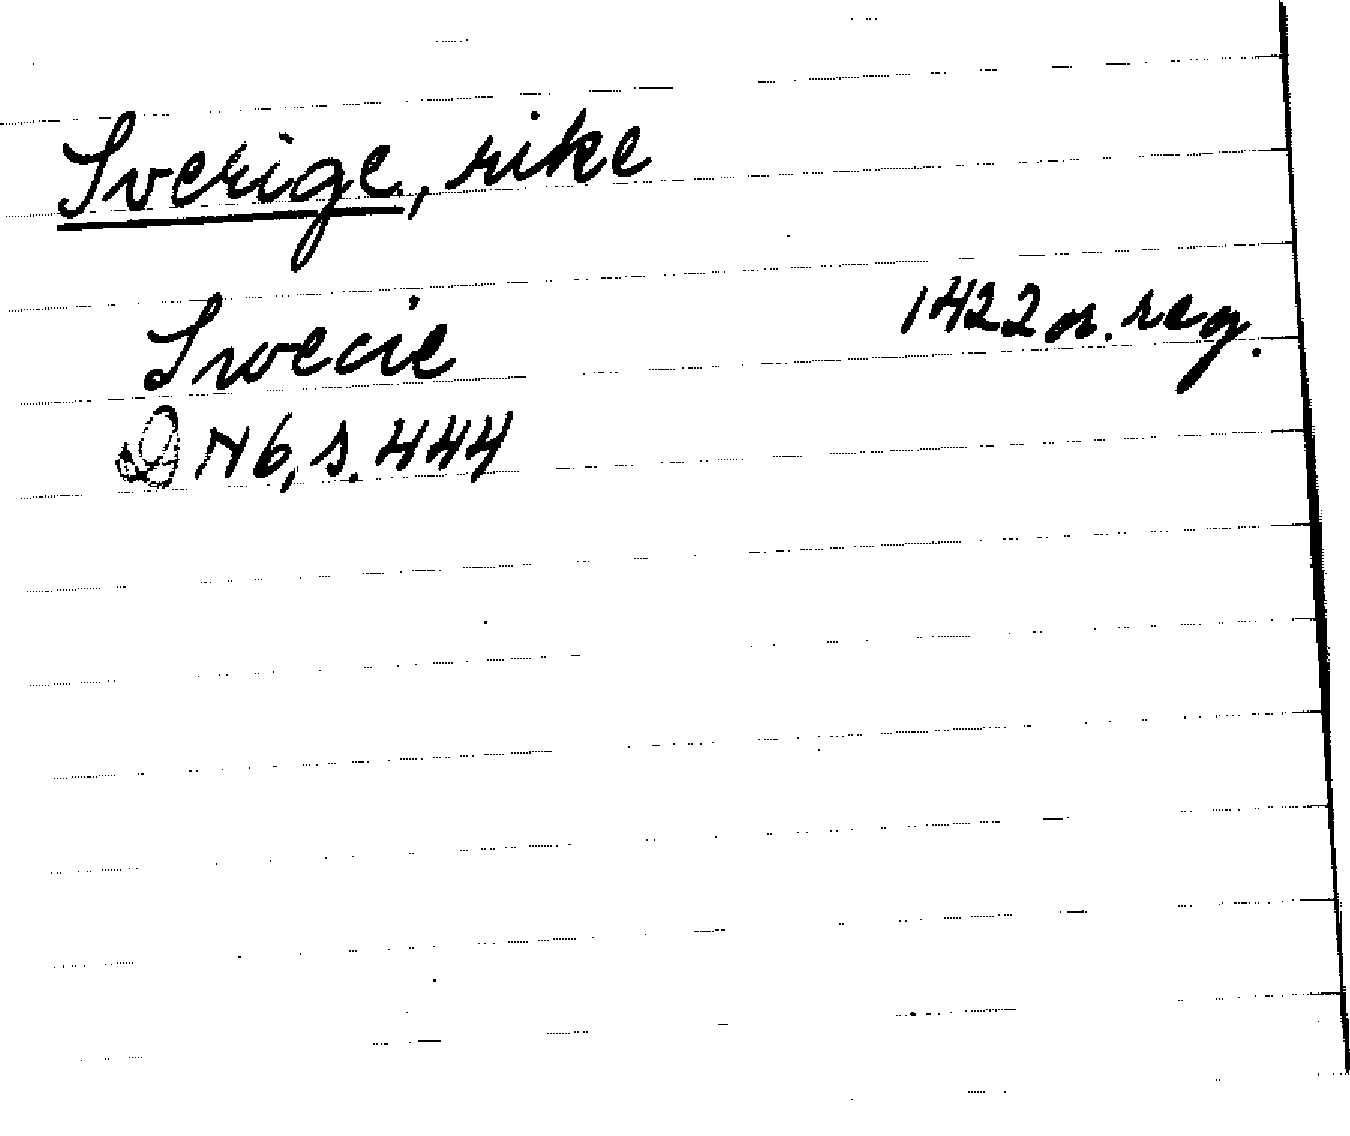 Sverige, rike
Swecie 1422 or. reg.
D N6, s. 444